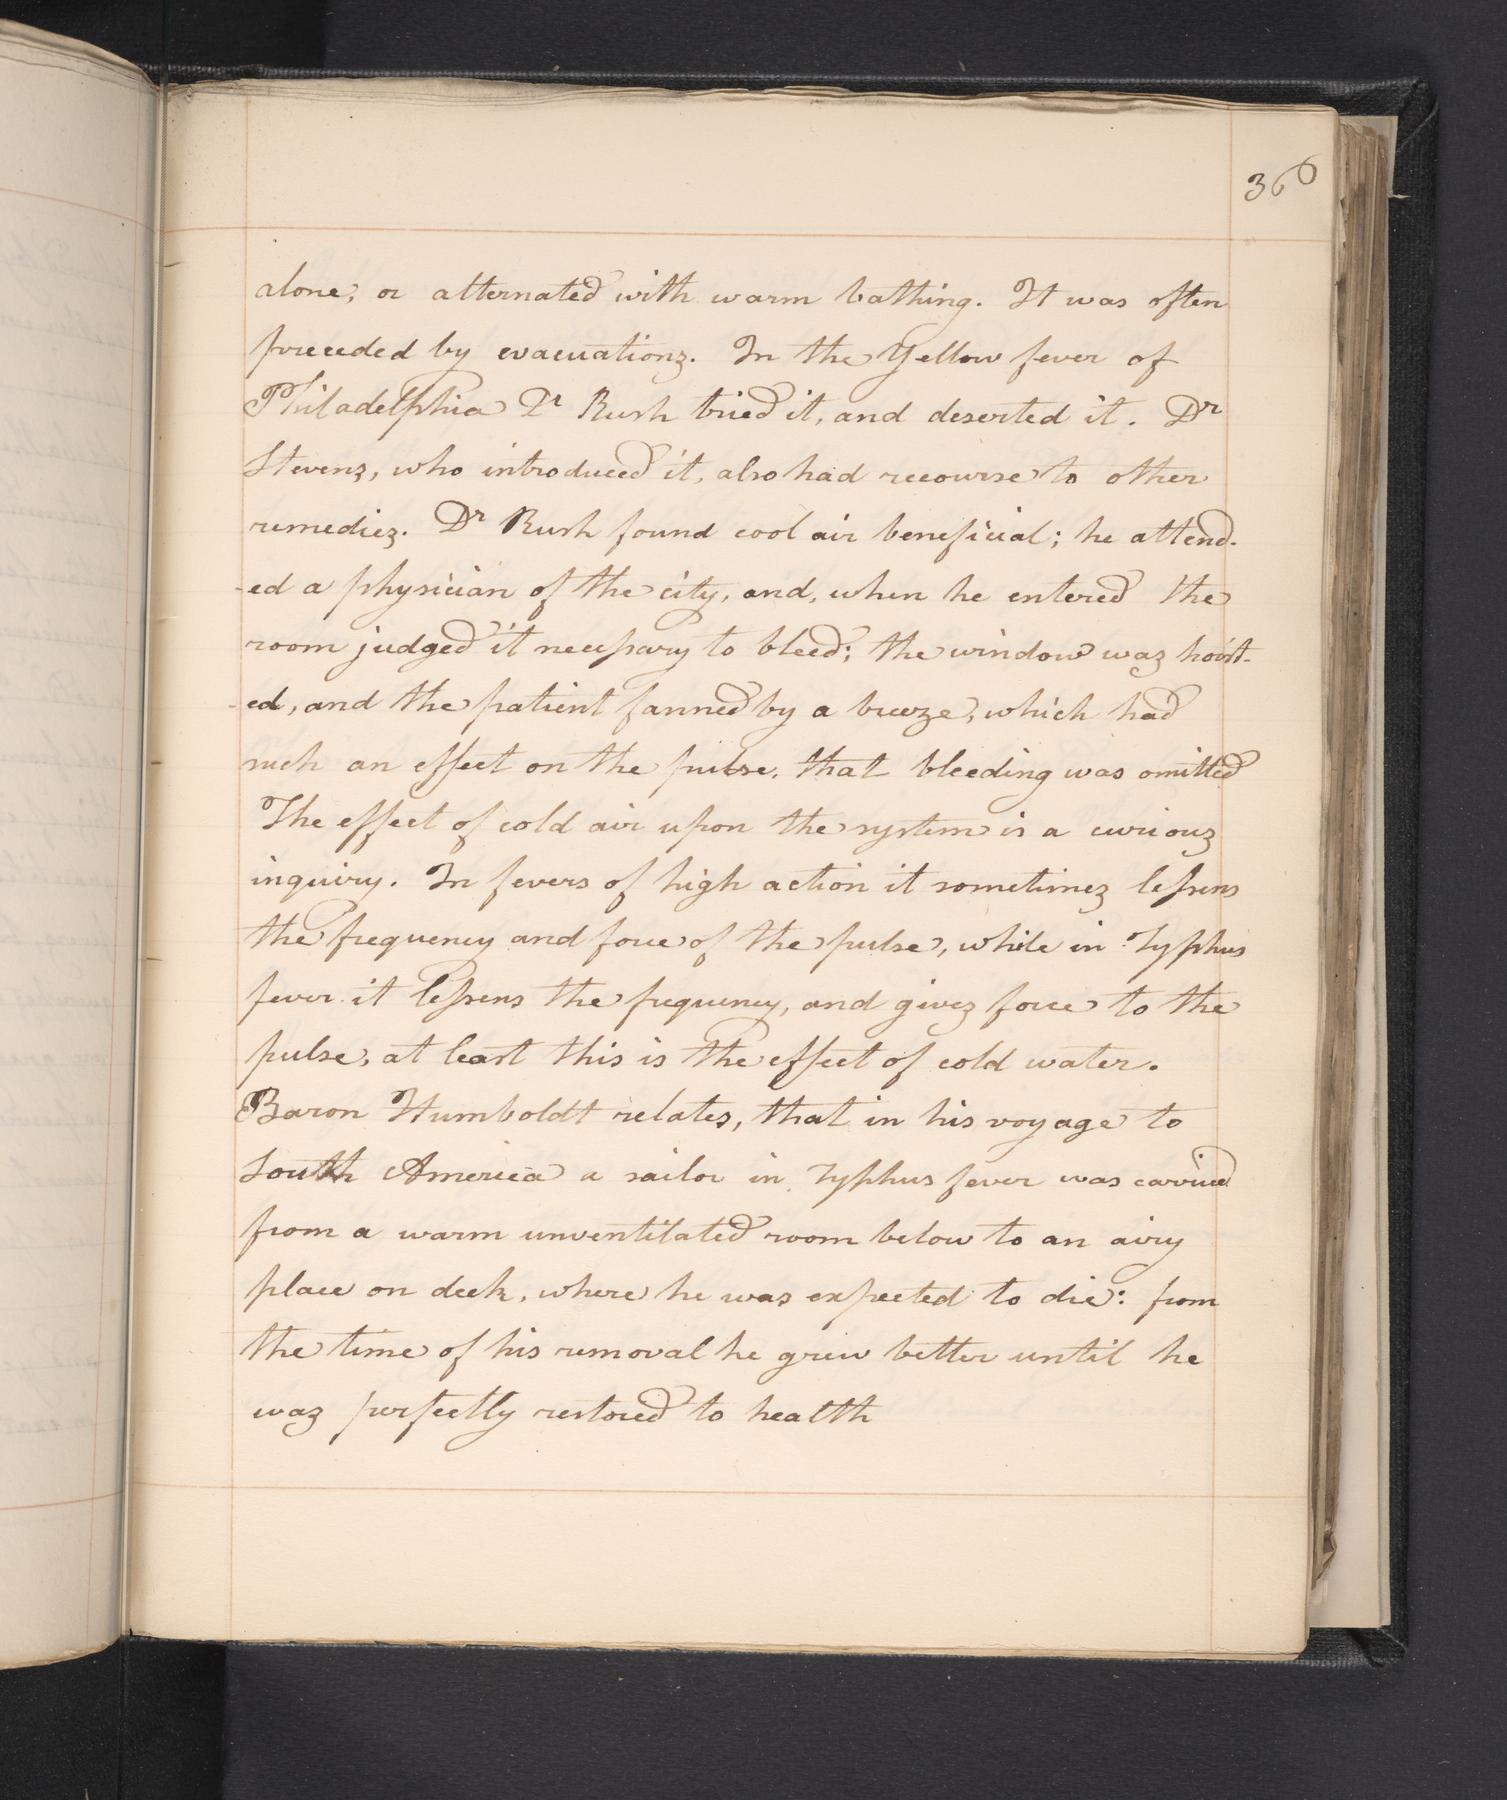 366
alone, or alternated with warm bathing. It was often
preceded by evacuations. In the Yellow fever of
Philadelphia Dr Rush tried it, and deserted it. Dr
Stevens, who introduced it, also had recourse to other
remedies. Dr Rush found cool air beneficial; he attend-
-ed a physician of the city, and, when he entered the
room judged it necessary to bleed; the window was hoist-
-ed, and the patient fanned by a breeze, which had
such an effect on the pulse, that bleeding was omitted
The effect of cold air upon the system is a curious
inquiry. In fevers of high action it sometimes lessens
the frequency and force of the pulse, while in Typhus
fever it lessens the frequency, and gives force to the
pulse, at least this is the effect of cold water.
Baron Humboldt relates, that in his voyage to
South America a sailor in Typhus fever was carried
from a warm unventilated room below to an airy
place on deck, where he was expected to die: from
the time of his removal he grew better until he
was perfectly restored to health